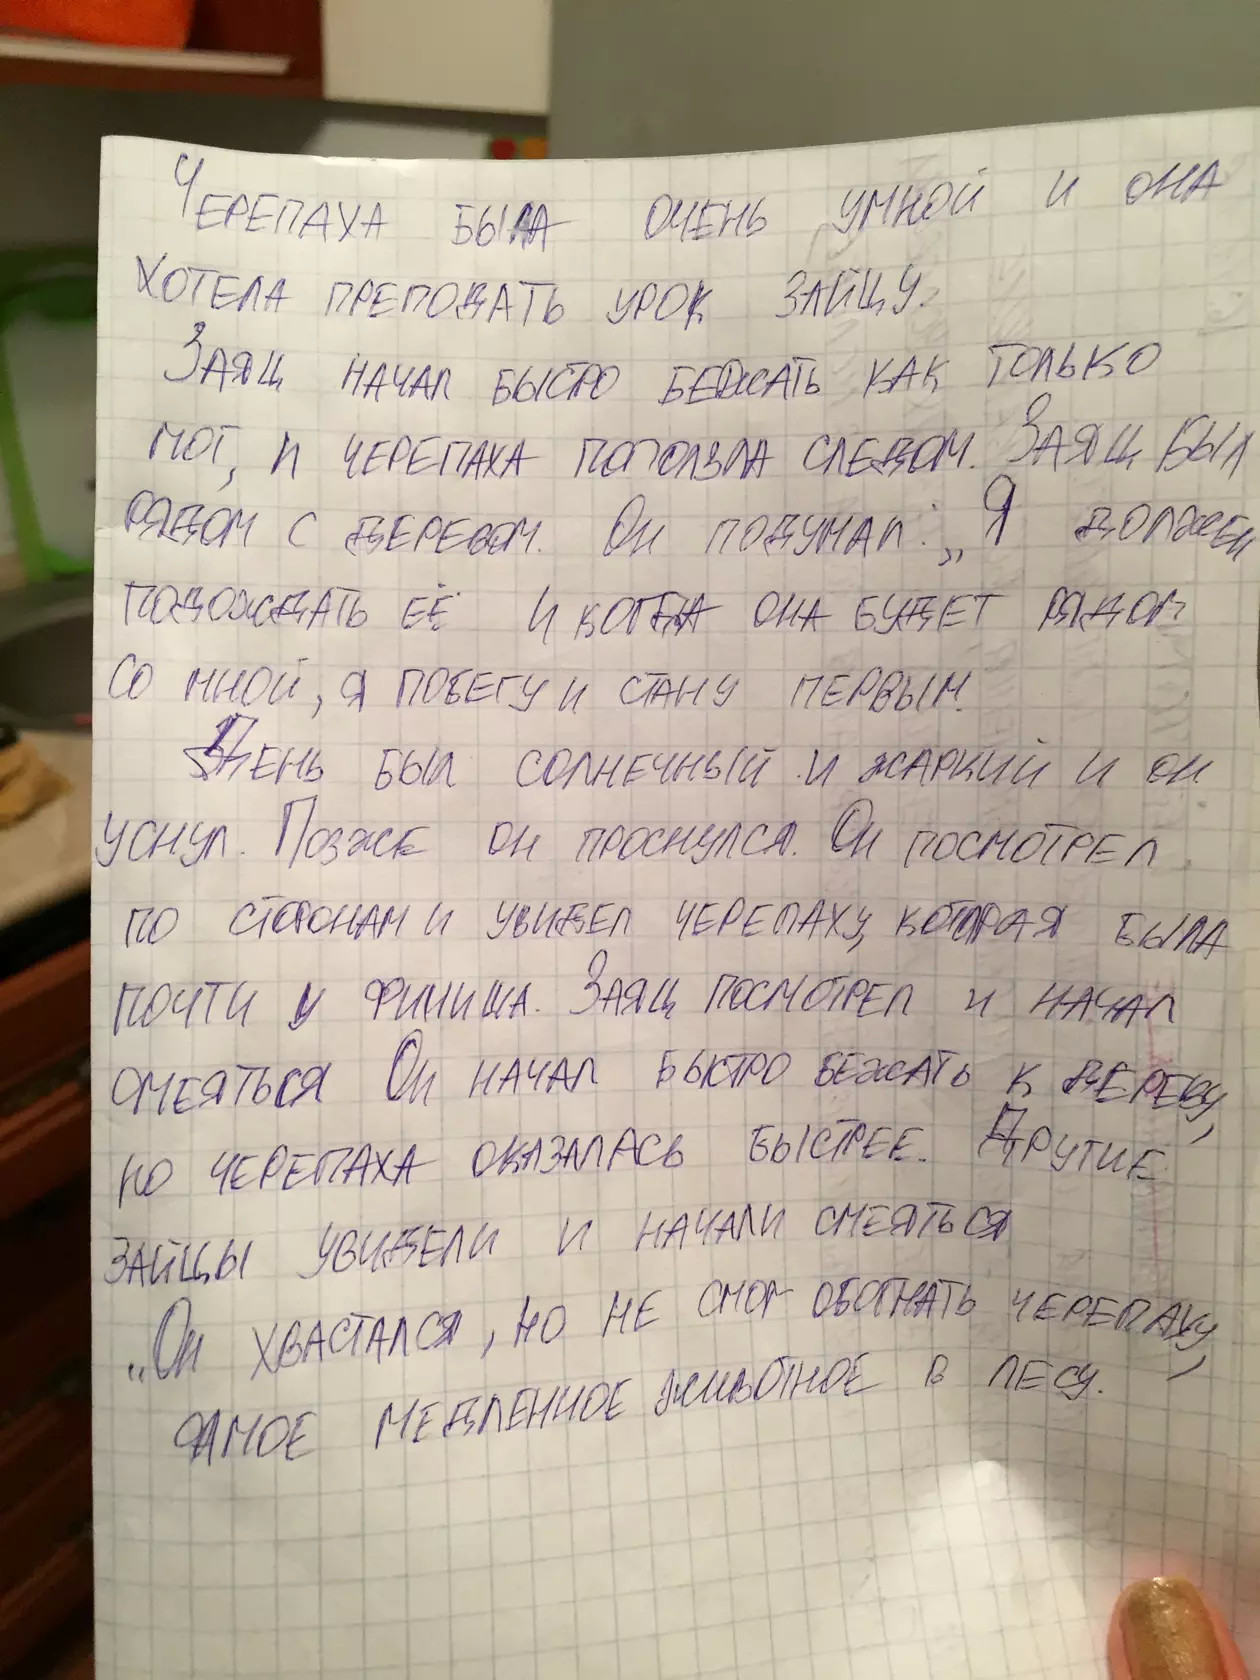 Черепаха была очень умной и она
хотела преподать урок зайцу.
Заяц начал быстро бежать как только
мог, и черепаха поползла следом. Заяц был
рядом с деревом. Он подумал: „Я должен
подождать её и когда она будет рядом
со мной, я побегу и стану первым.
День был солнечный и жаркий и он
уснул. Позже он проснулся. Он посмотрел
по сторонам и увидел черепаху, которая была
почти у финиша. Заяц посмотрел и начал
смеяться Он начал быстро бежать к дереву,
но черепаха оказалась быстрее. Другие
зайцы увидели и начали смеяться
„Он хвастался, но не смог обогнать черепаху,
самое медленное животное в лесу.